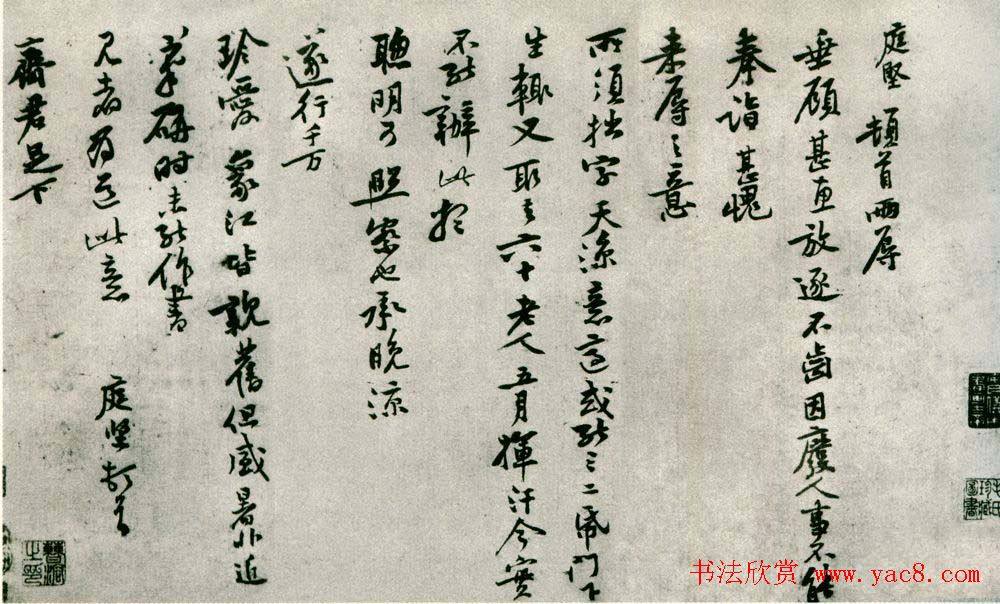 庭堅頓首兩辱
垂顧甚惠放逐不齒因廢人事不能
奉詣甚愧
来辱之意
所須拙字天凉意適或能三二紙門下
生輒又取去六十老人五月揮汗今實
不能辦此想
聰明可照察也承晚涼
遂行千万
珍愛象江皆親舊但盛暑非近
筆硯時未能作書
見者為道此意
庭堅頓首
齊君足下
書法欣赏 www.yac8.com